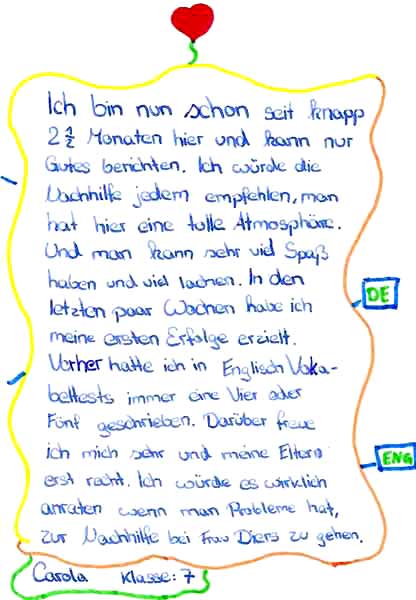 Ich bin nun schon seit knapp
2 1/2 Monaten hier und kann nur
Gutes berichten. Ich würde die
Nachhilfe jedem empfehlen, man
hat hier eine tolle Atmosphäre.
Und man kann sehr viel Spaß
haben und viel lachen. In den
letzten paar Wochen habe ich
DE
meine ersten Erfolge erzielt.
Vorher hatte ich in Englisch Voka-
beltests immer eine Vier oder
Fünf geschrieben. Darüber freue
ich mich sehr und meine Eltern
ENG
erst recht. Ich würde es wirklich
anraten wenn man Probleme hat,
zur Nachhilfe bei Frau Diers zu gehen.
Carola Klasse: 7